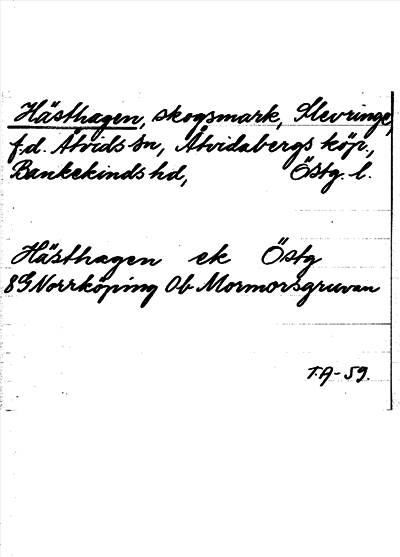 Hästhagen, skogsmark, Slevringe,
f.d. Åtvids sn, Åtvidabergs köp.,
Bankekinds hd, Östg. l.
Hästhagen ek Östg
8G Norrköping 0b Mormorsgruvan
T.A-59.